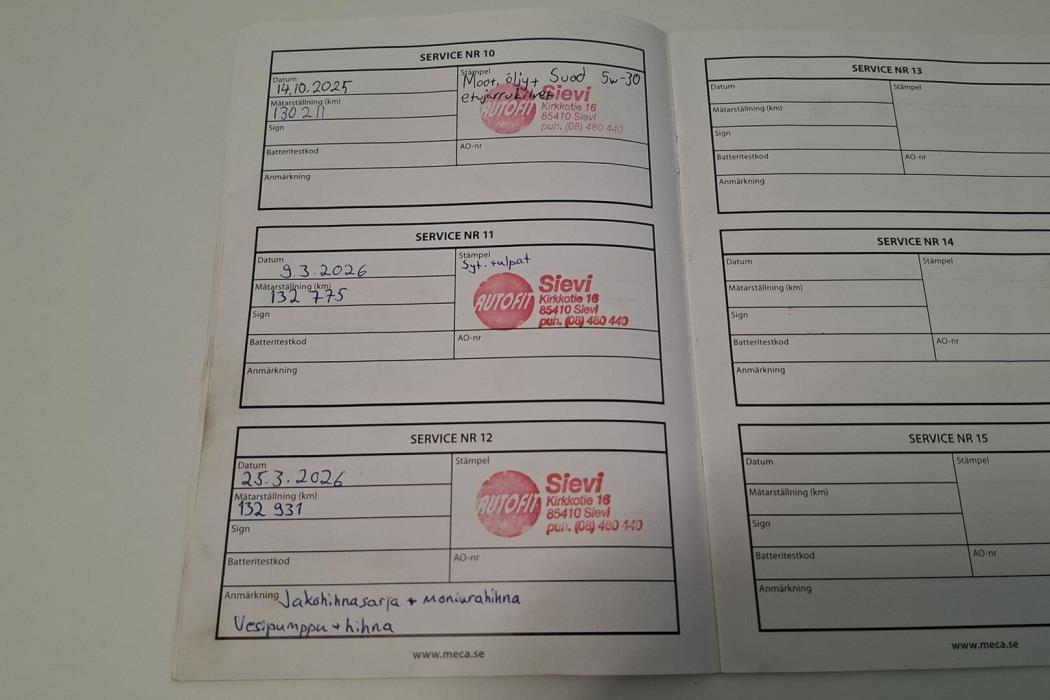 SERVICE NR 10
Datum
14.10.2025
Stämpel
Moot. öljy+ Suod 5w-30
etujarrukilvet
AUTOFIT
Sievi
Kirkkotie 16
85410 Sievi
puh. (08) 480 440
Mätarställning (km)
130 211
Sign
Batteritestkod
AO-nr
Anmärkning
SERVICE NR 11
Datum
9.3.2026
Stämpel
Syt. tulpat
AUTOFIT
Sievi
Kirkkotie 16
85410 Sievi
puh. (08) 480 440
Mätarställning (km)
132 775
Sign
Batteritestkod
AO-nr
Anmärkning
SERVICE NR 12
Datum
25.3.2026
Stämpel
AUTOFIT
Sievi
Kirkkotie 16
85410 Sievi
puh. (08) 480 440
Mätarställning (km)
132 931
Sign
Batteritestkod
AO-nr
Anmärkning Jakohihnasarja + moniurahihna
Vesipumppu + hihna
www.meca.se
SERVICE NR 13
Datum
Stämpel
Mätarställning (km)
Sign
Batteritestkod
AO-nr
Anmärkning
SERVICE NR 14
Datum
Stämpel
Mätarställning (km)
Sign
Batteritestkod
AO-nr
Anmärkning
SERVICE NR 15
Datum
Stämpel
Mätarställning (km)
Sign
Batteritestkod
AO-nr
Anmärkning
www.meca.se